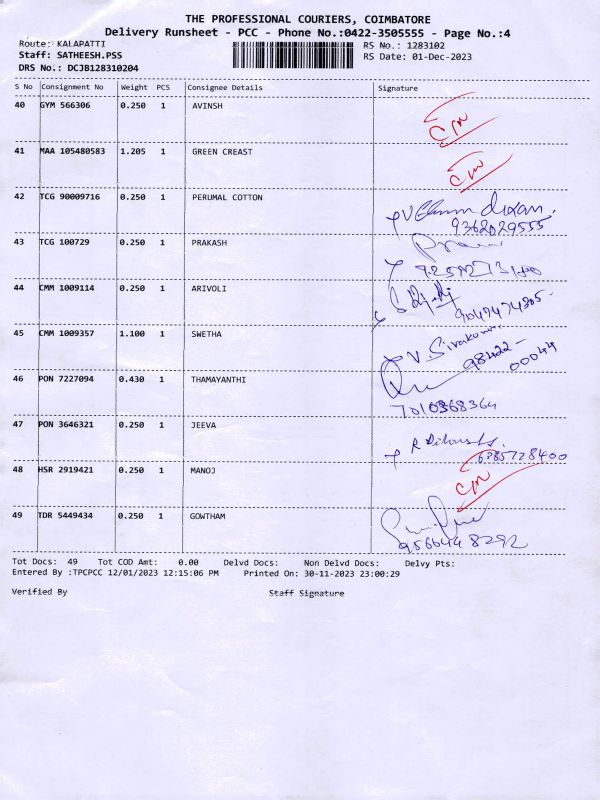 THE PROFESSIONAL COURIERS, COIMBATORE
Delivery Runsheet - PCC - Phone No.:0422-3505555 - Page No.:4
Route: KALAPATTI
RS No.: 1283102
Staff: SATHEESH.PSS
RS Date: 01-Dec-2023
DRS No.: DCJB128310204
S No Consignment No Weight PCS Consignee Details Signature
40 GYM 566306 0.250 1 AVINSH
41 MAA 105480583 1.205 1 GREEN CREAST
42 TCG 90009716 0.250 1 PERUMAL COTTON
9362029555
43 TCG 100729 0.250 1 PRAKASH
44 CMM 1009114 0.250 1 ARIVOLI
9047474305
45 CMM 1009357 1.100 1 SWETHA
V. Sivakumar
98422-
00044
46 PON 7227094 0.430 1 THAMAYANTHI
7010368364
47 PON 3646321 0.250 1 JEEVA
6385728400
48 HSR 2919421 0.250 1 MANOJ
49 TDR 5449434 0.250 1 GOWTHAM
9566448292
Tot Docs: 49 Tot COD Amt: 0.00 Delvd Docs: Non Delvd Docs: Delvy Pts:
Entered By :TPCPCC 12/01/2023 12:15:06 PM Printed On: 30-11-2023 23:00:29
Verified By Staff Signature